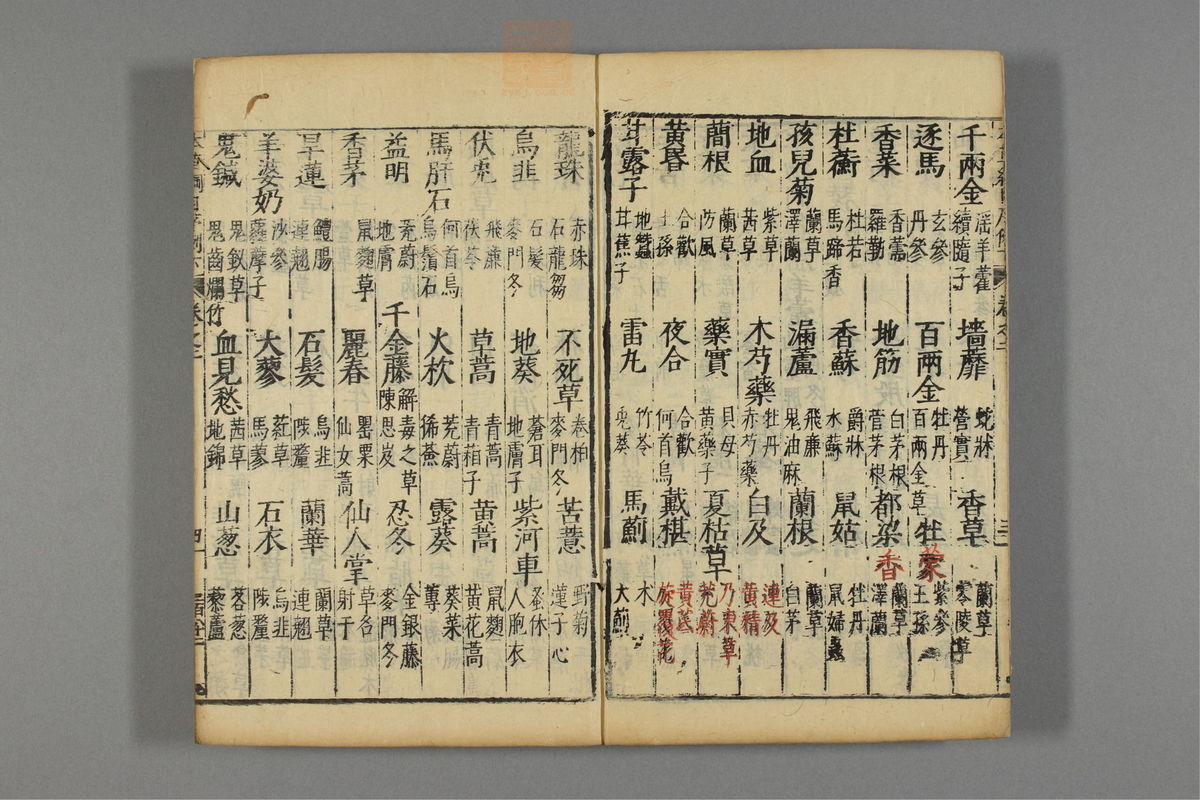 千兩金 淫羊藿 續隨子 墻蘼 蛇牀 營實 香草 蘭草 零陵草
逐馬 玄參 丹參 百兩金 牡丹 百兩金草 牡蒙 紫參 王孫
香菜 香薷 羅勒 地筋 白茅根 菅茅根 都梁香 蘭草 澤蘭
杜蘅 杜若 馬蹄香 香蘇 爵牀 水蘇 鼠姑 牡丹 鼠婦蟲
孩兒菊 蘭草 澤蘭 漏蘆 飛廉 鬼油麻 蘭根 蘭草 白茅
地血 紫草 茜草 木芍藥 牡丹 赤芍藥 白及 連及 黃精
蕳根 蘭草 防風 藥實 貝母 黃藥子 夏枯草 乃東草 茺蔚
黃昏 合歡 王孫 夜合 合歡 何首烏 戴椹 黃芪 旋覆花
甘露子 地蠶 甘蕉子 雷丸 竹苓 兎葵 馬薊 木 大薊
龍珠 赤珠 石龍芻 不死草 卷柏 麥門冬 苦薏 野菊 蓮子心
烏韭 石髮 麥門冬 地葵 蒼耳 地膚子 紫河車 蚤休 人胞衣
伏兎 飛廉 茯苓 草蒿 青蒿 青葙子 黃蒿 鼠麴 黃花蒿
馬肝石 何首烏 烏鬚石 火杴 茺蔚 豨薟 露葵 葵菜 蓴
益明 茺蔚 地膚 千金藤 解毒之草 陳思岌 忍冬 金銀藤 麥門冬
香茅 鼠麴草 麗春 罌粟 仙女蒿 仙人掌 草名 射干
旱蓮 鱧腸 連翹 石髮 烏韭 陟釐 蘭華 蘭草 連翹
羊婆奶 沙參 蘿藦子 大蓼 葒草 馬蓼 石衣 烏韭 陟釐
鬼鍼 鬼釵草 鬼齒爛竹 血見愁 茜草 地錦 山蔥 茖蔥 藜蘆